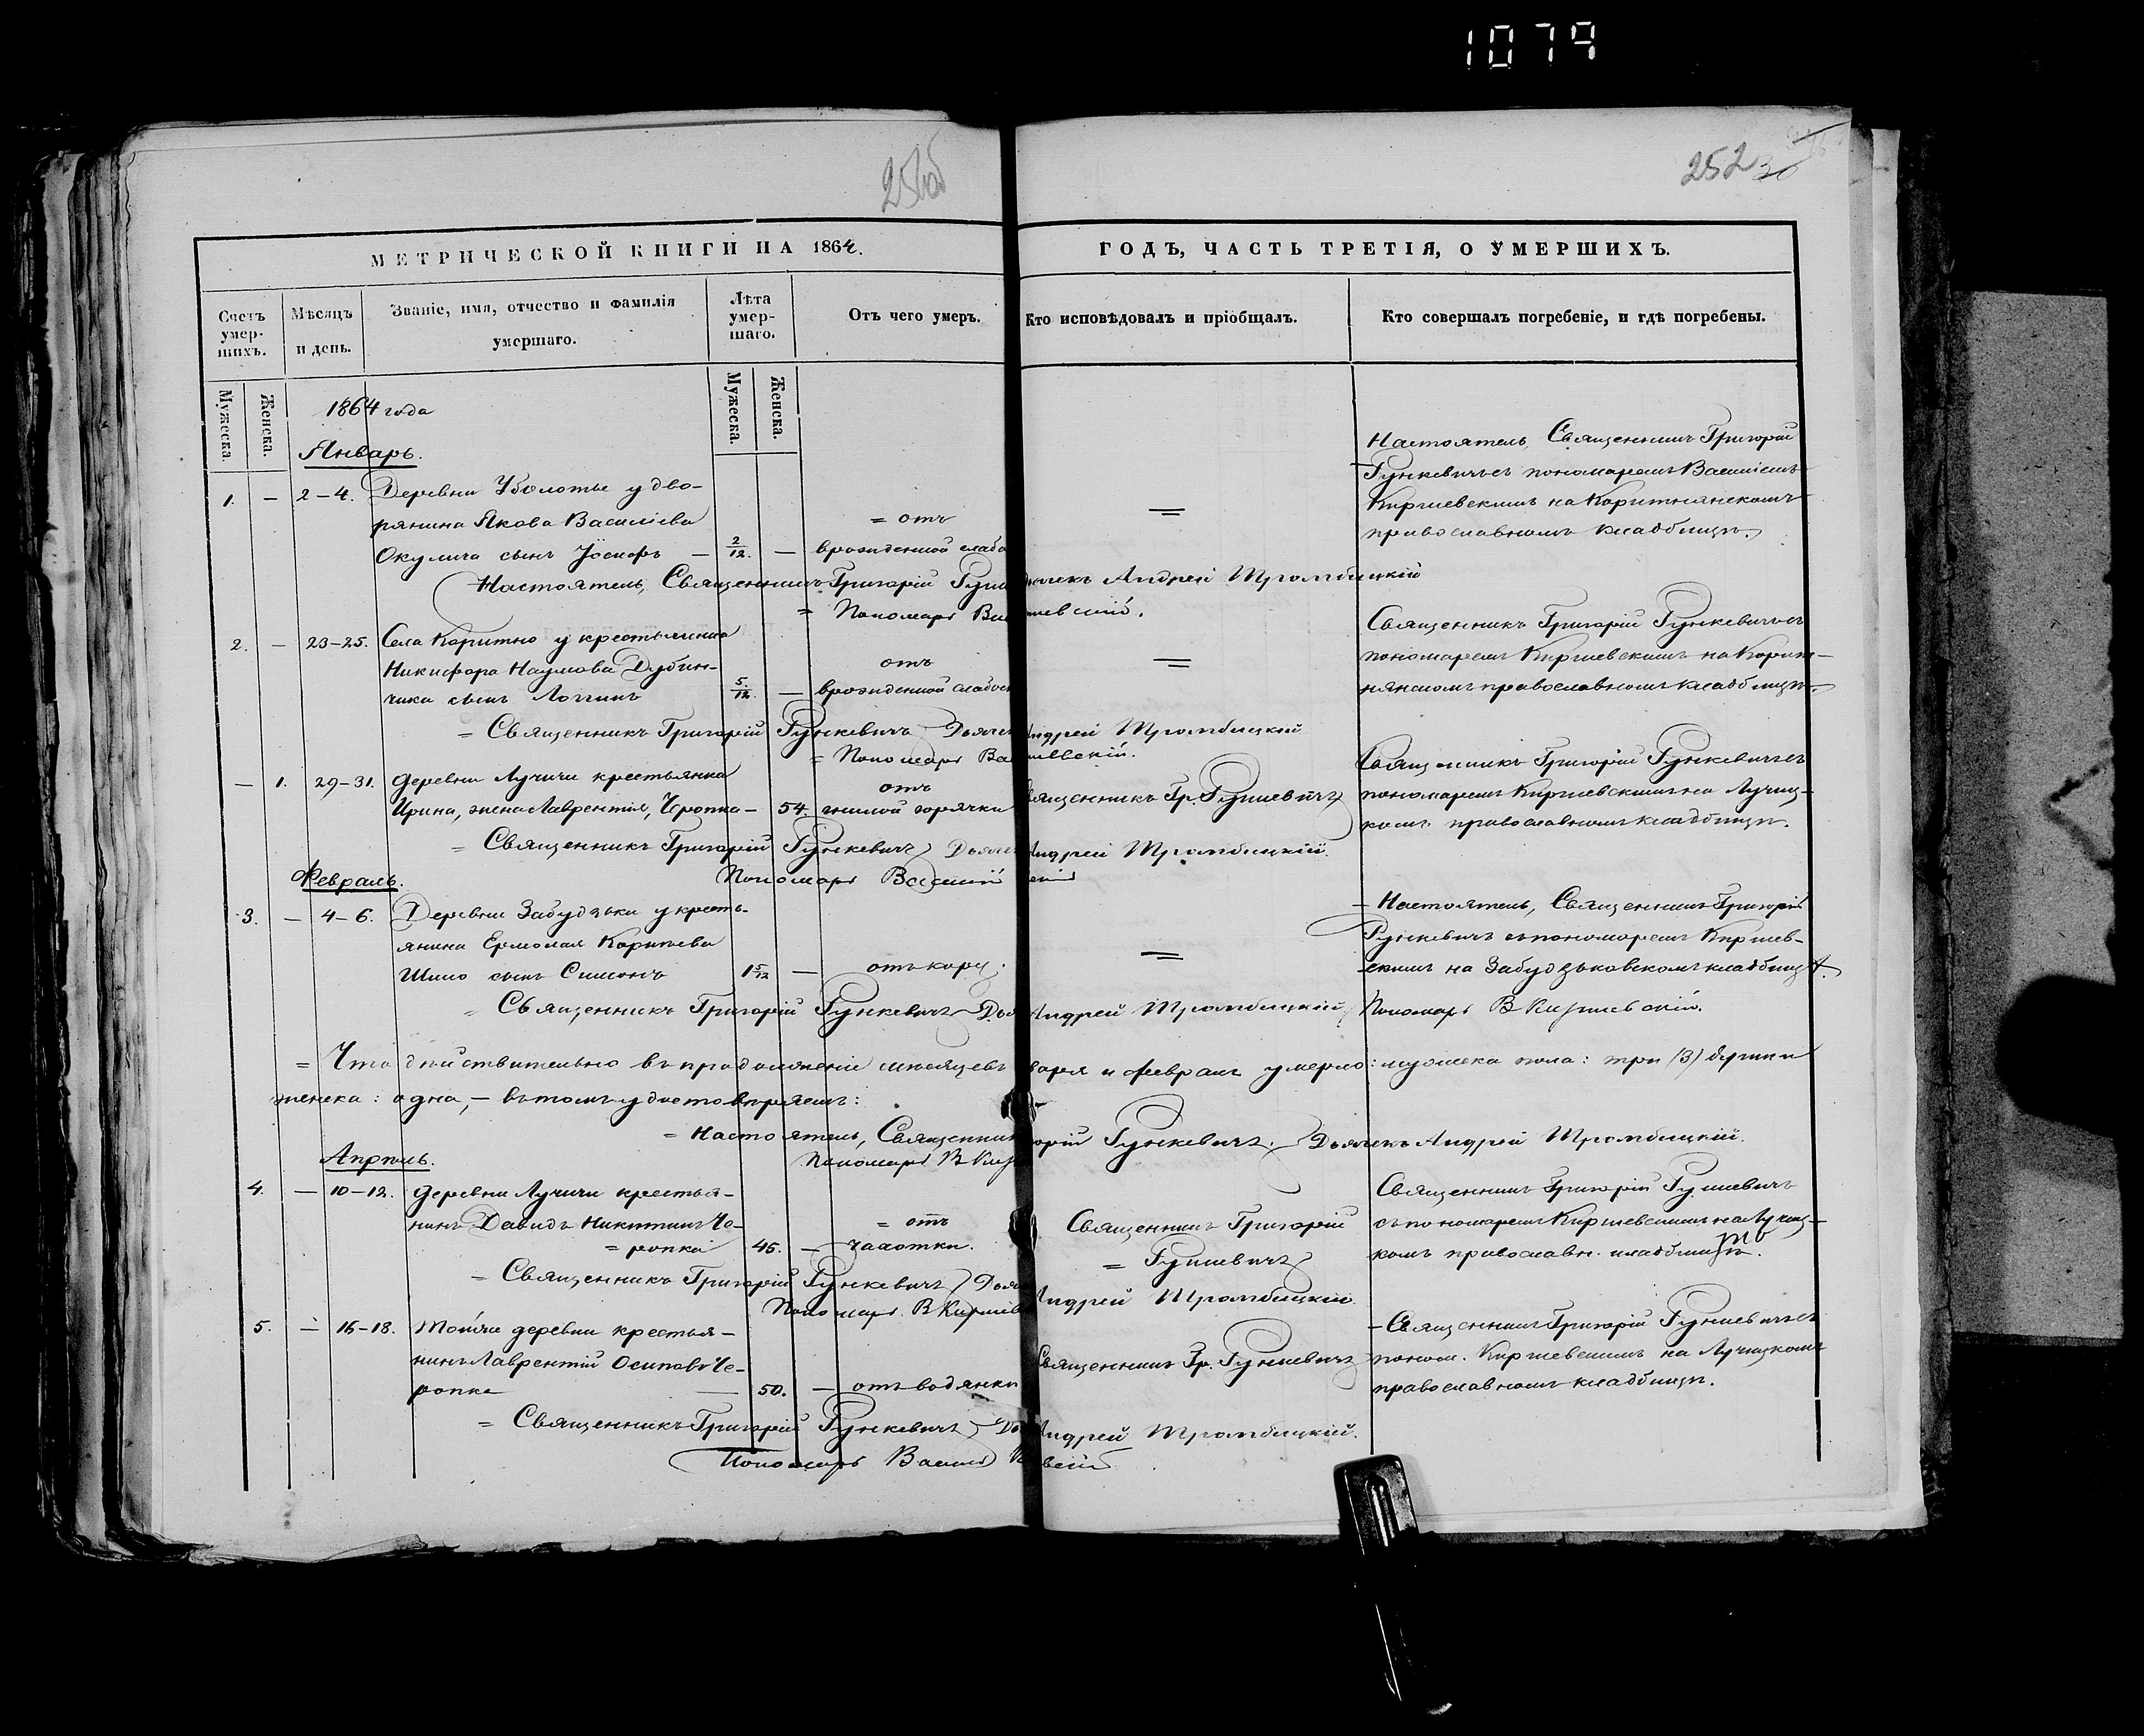 1079
252 30
МЕТРИЧЕСКОЙ КНИГИ НА 1864.
ГОДЪ, ЧАСТЬ ТРЕТІЯ, О УМЕРШИХЪ.
Счетъ умер-шихъ.
Мѣсяцъ и день.
Званіе, имя, отчество и фамилія умершаго.
Лѣта умер-шаго.
Отъ чего умеръ.
Кто исповѣдовалъ и пріобщалъ.
Кто совершалъ погребеніе, и гдѣ погребены.
Мужеска. Женска.
Мужеска. Женска.
1864 года
Январь.
1. — 2–4. Деревни Уболотье у дво-
рянина Якова Василіева
Окулича сынъ Іосифъ — 2/12. —
= отъ
врожденной слабо
=
Настоятель, Священникъ Григорій
Гункевичъ съ пономаремъ Василіемъ
Киршевскимъ на Коритнянскомъ
православномъ кладбищѣ.
Настоятель, Священникъ Григорій Гунк
Андрей Тромбицкій
= Пономарь
2. — 23–25. Села Коритно у крестьянина
Никифора Наумова Дубин-
чика сынъ Логгинъ 5/12. —
отъ
врожденной слабос
=
Священникъ Григорій Гункевичъ съ
пономаремъ Киршевскимъ на Корит-
нянскомъ православномъ кладбищѣ.
= Священникъ Григорій Гункевичъ Дьячек
Андрей Тромбицкій
= Пономарь Ва
— 1. 29–31. Деревни Лучичи крестьянка
Ирина, жена Лаврентія, Чропка — 54.
отъ
гнилой горячки
вященникъ Гр. Гункевичъ
Священникъ Григорій Гункевичъ съ
пономаремъ Киршевскимъ на Лучиц-
комъ православномъ кладбищѣ.
= Священникъ Григорій Гункевичъ Дьяче
Андрей Тромбицкій.
Пономарь Василій
Февраль.
3. — 4–6. Деревни Забудзьки у кресть-
янина Ермолая
Шило сынъ Симонъ 1 5/12 — отъ кору.
=
– Настоятель, Священникъ Григорій
Гункевичъ съ пономаремъ Киршев-
скимъ на Забудзьковскомъ кладбищѣ.
= Священникъ Григорій Гункевичъ Дья
Андрей Тромбицкій Пономарь В Киршевскій.
= Что дѣйствительно въ продолженіе мѣсяцевъ
варя и февраля умерло: мужеска пола: три (3) души и
женска: одна, – въ томъ удостовѣряемъ:
= Настоятель, Священник
орій Гункевичъ. Дьячекъ Андрей Тромбицкій.
Пономарь В Кир
Апрѣль.
4. — 10–12. Деревни Лучичи крестья-
нинъ Давидъ Никитинъ Че-
= ропка 45. —
= отъ
чахотки.
Священникъ Григорій
= Гункевичъ
Священникъ Григорій Гункевичъ
съ пономаремъ Киршевскимъ на Лучиц-
комъ православн. кладбищѣ.
= Священникъ Григорій Гункевичъ Дья
Андрей Тромбицкій
Пономарь В Киршев
5. — 16–18. Той же деревни крестья-
нинъ Лаврентій Осиповъ Че-
ропка — 50. — отъ водянки
Священникъ Гр. Гункевичъ
– Священникъ Григорій Гункевичъ съ
поном. Киршевскимъ на Лучицкомъ
православномъ кладбищѣ.
= Священникъ Григорій Гункевичъ Дья
Андрей Тромбицкій.
Пономарь Василій